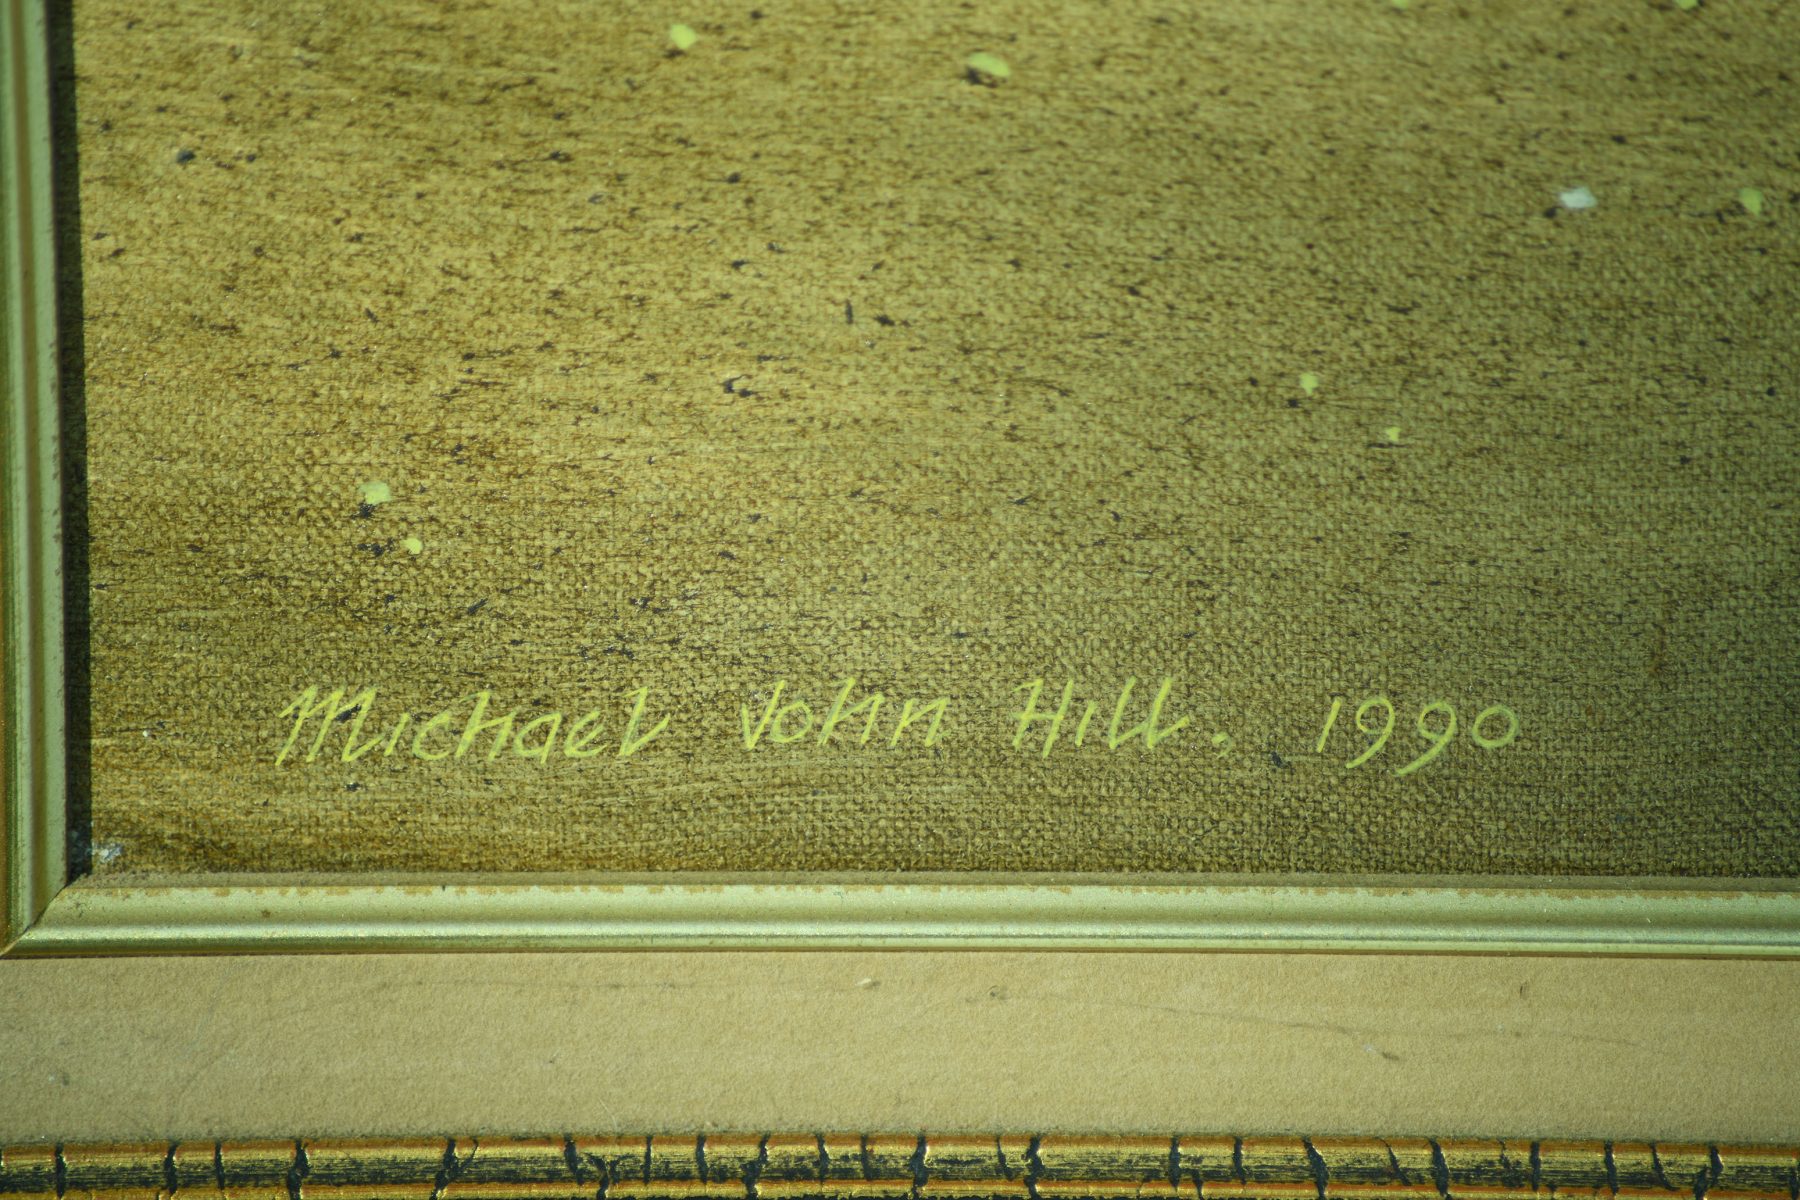 Michael John Hill. 1990